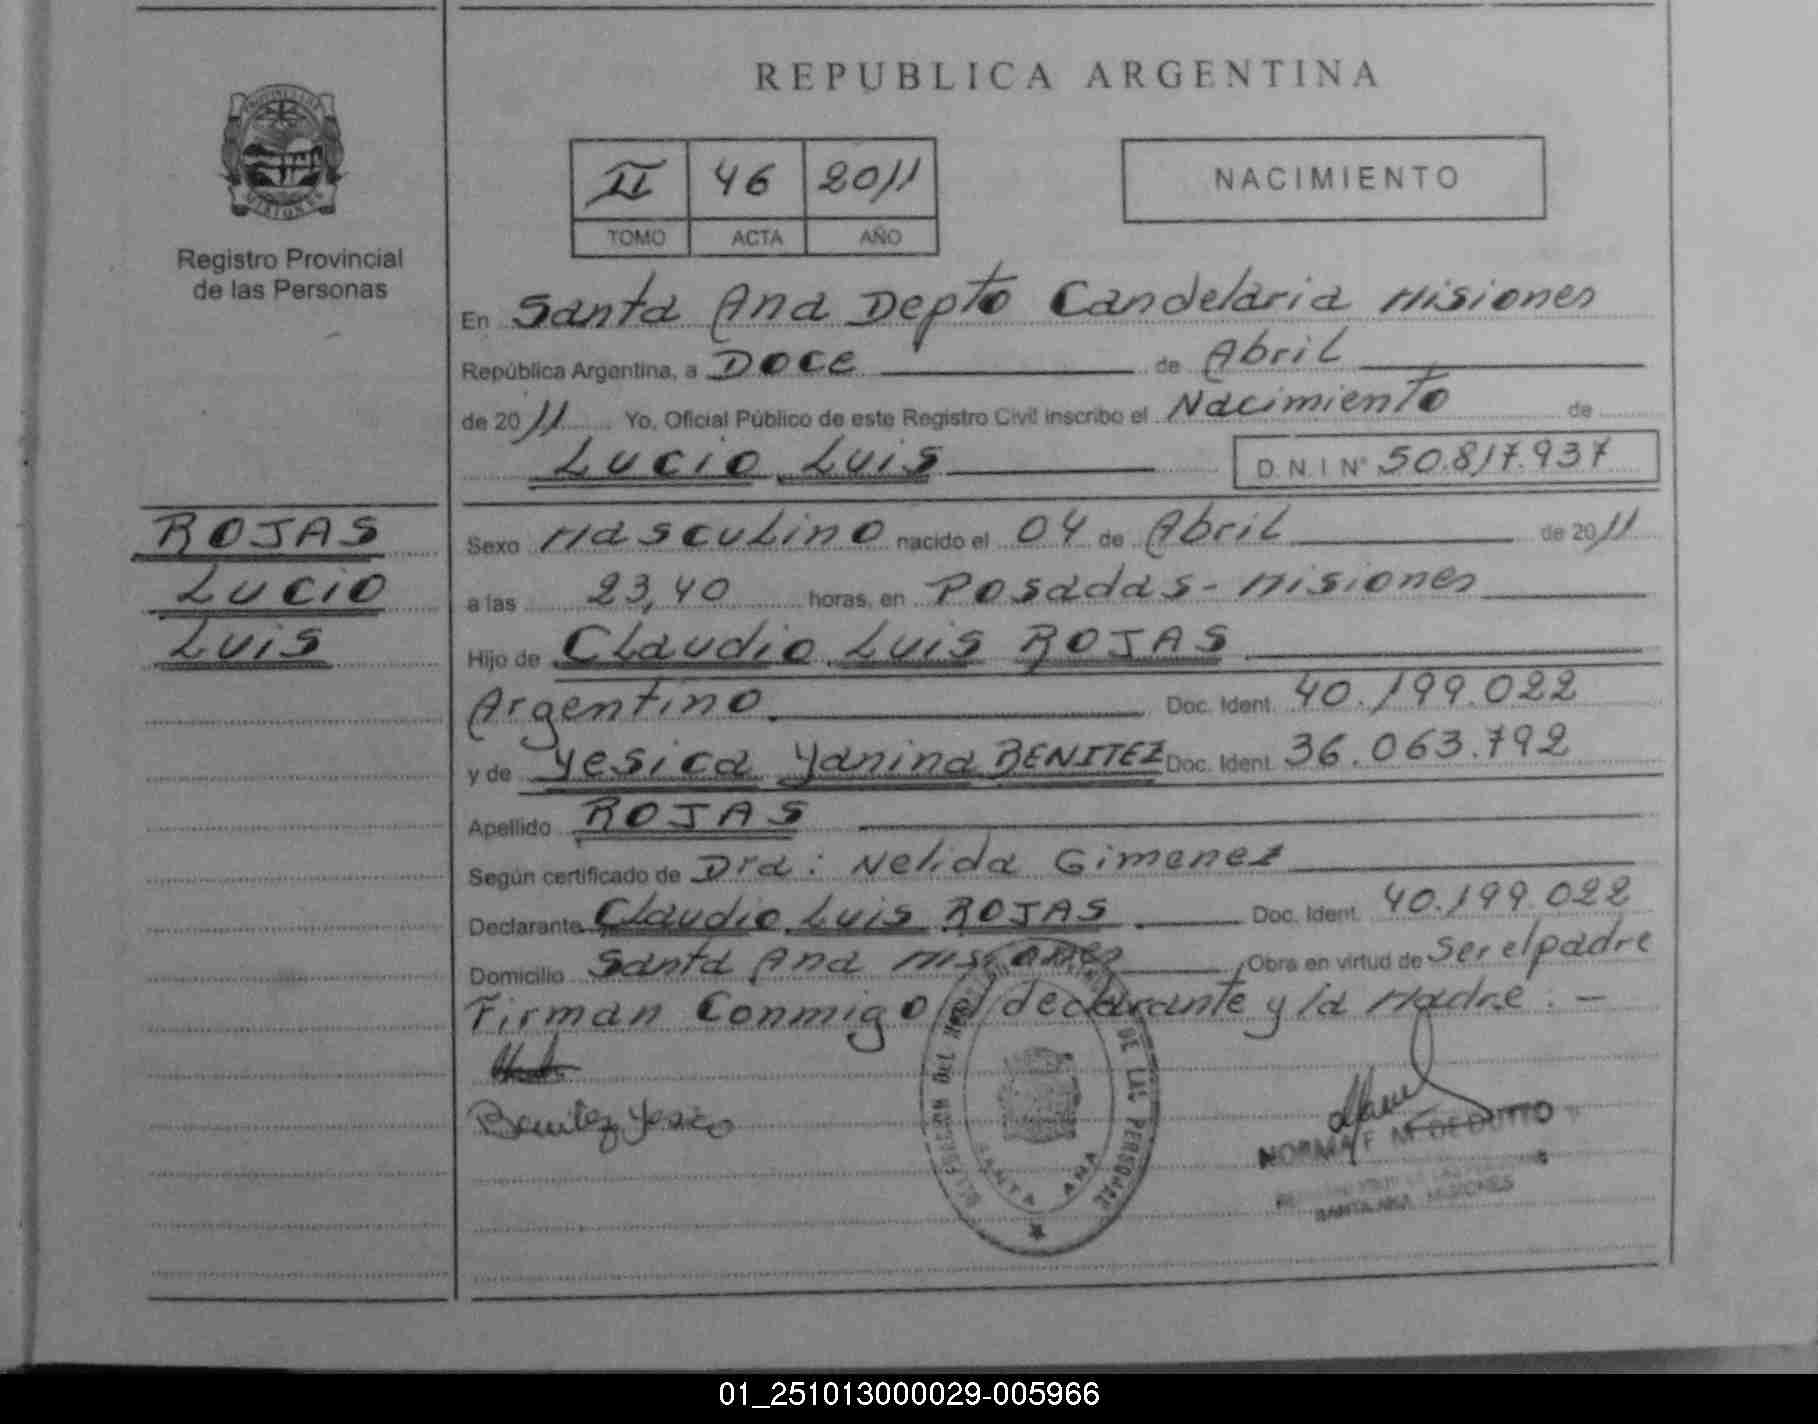 REPUBLICA ARGENTINA
II 46 2011
TOMO ACTA AÑO
NACIMIENTO
PROVINCIA DE
MISIONES
Registro Provincial
de las Personas
En Santa Ana Depto Candelaria Misiones
República Argentina, a Doce de Abril
de 2011 Yo, Oficial Público de este Registro Civil inscribo el Nacimiento de
Lucio Luis D.N.I Nº 50.817.937
ROJAS
Lucio
Luis
Sexo Masculino nacido el 04 de Abril de 2011
a las 23,40 horas, en Posadas - Misiones
Hijo de Claudio Luis ROJAS
Argentino Doc. Ident. 40.199.022
y de Yesica Yanina BENITEZ Doc. Ident. 36.063.792
Apellido ROJAS
Según certificado de Dra: Nelida Gimenez
Declarante Claudio Luis ROJAS Doc. Ident. 40.199.022
Domicilio Santa Ana Misiones Obra en virtud de Ser el padre
Firman Conmigo el declarante y la Madre. -
Benitez Yesica
DE LAS PERSONAS
SANTA ANA
NORMA F.
SANTA ANA MISIONES
01_251013000029-005966